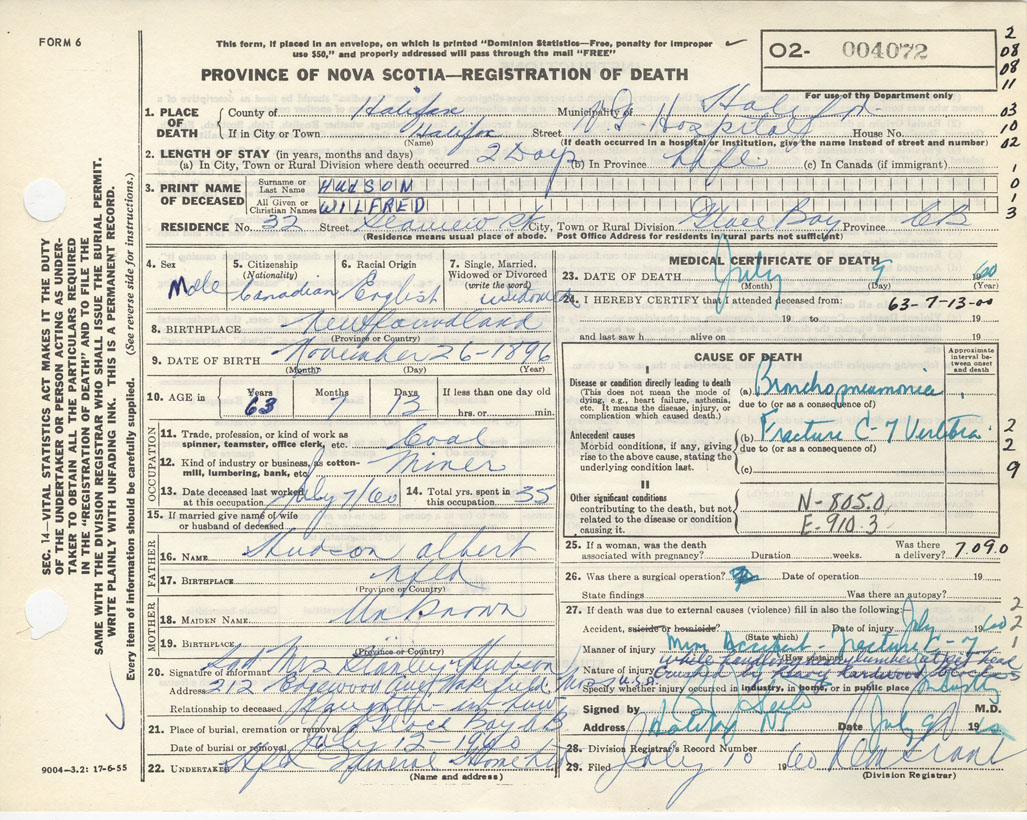 FORM 6
This form, if placed in an envelope, on which is printed "Dominion Statistics—Free, penalty for improper
use $50," and properly addressed will pass through the mail "FREE"
O2- 004072
For use of the Department only
2
08
08
11
03
10
02
1
0
1
3
PROVINCE OF NOVA SCOTIA—REGISTRATION OF DEATH
SEC. 14—VITAL STATISTICS ACT MAKES IT THE DUTY
OF THE UNDERTAKER OR PERSON ACTING AS UNDER-
TAKER TO OBTAIN ALL THE PARTICULARS REQUIRED
IN THE "REGISTRATION OF DEATH" AND FILE THE
SAME WITH THE DIVISION REGISTRAR WHO SHALL ISSUE THE BURIAL PERMIT.
WRITE PLAINLY WITH UNFADING INK. THIS IS A PERMANENT RECORD.
Every item of information should be carefully supplied. (See reverse side for instructions.)
1. PLACE OF DEATH
County of Halifax Municipality of Halifax
If in City or Town Halifax Street N.S. Hospital House No.
(Name) (If death occurred in a hospital or institution, give the name instead of street and number)
2. LENGTH OF STAY (in years, months and days)
(a) In City, Town or Rural Division where death occurred 2 Days (b) In Province Life (c) In Canada (if immigrant)
3. PRINT NAME OF DECEASED
Surname or Last Name HUDSON
All Given or Christian Names WILFRED
RESIDENCE No. 32 Street Seaview St City, Town or Rural Division Glace Bay Province CB
(Residence means usual place of abode. Post Office Address for residents in rural parts not sufficient)
4. Sex Male
5. Citizenship (Nationality) Canadian
6. Racial Origin English
7. Single, Married, Widowed or Divorced (write the word) widower
8. BIRTHPLACE Newfoundland
(Province or Country)
9. DATE OF BIRTH November 26-1896
(Month) (Day) (Year)
10. AGE in Years 63 Months 7 Days 13 If less than one day old
hrs. or min.
OCCUPATION
11. Trade, profession, or kind of work as spinner, teamster, office clerk, etc. Coal
12. Kind of industry or business, as cotton-mill, lumbering, bank, etc. Miner
13. Date deceased last worked at this occupation July 7/60
14. Total yrs. spent in this occupation 35
15. If married give name of wife or husband of deceased
FATHER
16. NAME Hudson Albert
17. BIRTHPLACE Nfld
(Province or Country)
MOTHER
18. MAIDEN NAME Unknown
19. BIRTHPLACE
(Province or Country)
20. Signature of informant Mrs Stanley Hudson
Address 212 Edgewood Wakefield Mass U.S.A.
Relationship to deceased Daughter-in-law
21. Place of burial, cremation or removal Glace Bay CB
Date of burial or removal July 12 1960
22. UNDERTAKER Funeral Home
(Name and address)
9004—3.2: 17-6-55
MEDICAL CERTIFICATE OF DEATH
23. DATE OF DEATH July 9 1960
(Month) (Day) (Year)
24. I HEREBY CERTIFY that I attended deceased from: 63-7-13-00
19 to 19
and last saw h alive on 19
CAUSE OF DEATH
Approximate interval between onset and death
I
Disease or condition directly leading to death
(This does not mean the mode of dying, e.g., heart failure, asthenia, etc. It means the disease, injury, or complication which caused death.)
(a) Bronchopneumonia
due to (or as a consequence of)
Antecedent causes
Morbid conditions, if any, giving rise to the above cause, stating the underlying condition last.
(b) Fracture C-7 Vertebra
due to (or as a consequence of)
(c)
2
2
9
II
Other significant conditions
contributing to the death, but not related to the disease or condition causing it.
N-805.0
E-910.3
25. If a woman, was the death associated with pregnancy? Duration weeks. Was there a delivery? 7.09.0
26. Was there a surgical operation? Date of operation 19
State findings Was there an autopsy?
27. If death was due to external causes (violence) fill in also the following:
Accident, suicide or homicide? Date of injury July 1960
(State which)
Manner of injury Mine Accident Fracture C-7
(How sustained)
Nature of injury Crushed by heavy hardwood
Specify whether injury occurred in industry, in home, or in public place Industry
2
2
1
Signed by M.D.
Address Halifax NS Date July 9 1960
28. Division Registrar's Record Number
29. Filed July 10 1960
(Division Registrar)